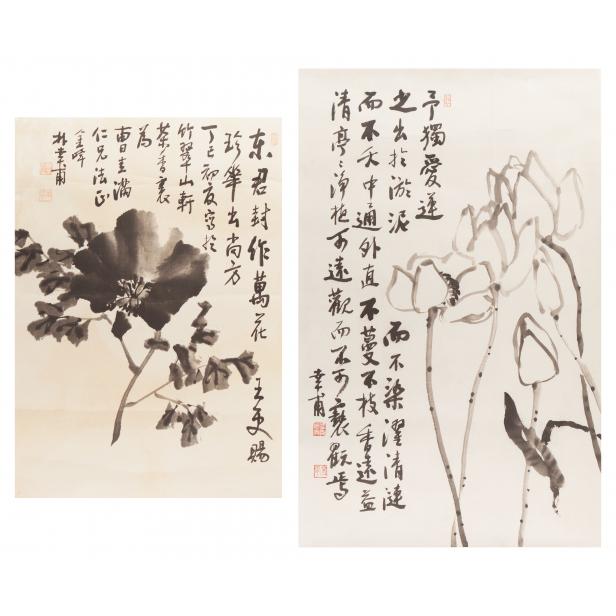 东君封作萬花王更賜
珍華出尚方
丁巳初夏寫於
竹翠山軒
茶香裏
為
曹圭滿
仁兄法正
金峰
朴幸甫
予獨愛蓮
之出於淤泥
而不染濯清漣
而不夭中通外直不蔓不枝香遠益
清亭々淨植可遠觀而不可褻翫焉
幸甫